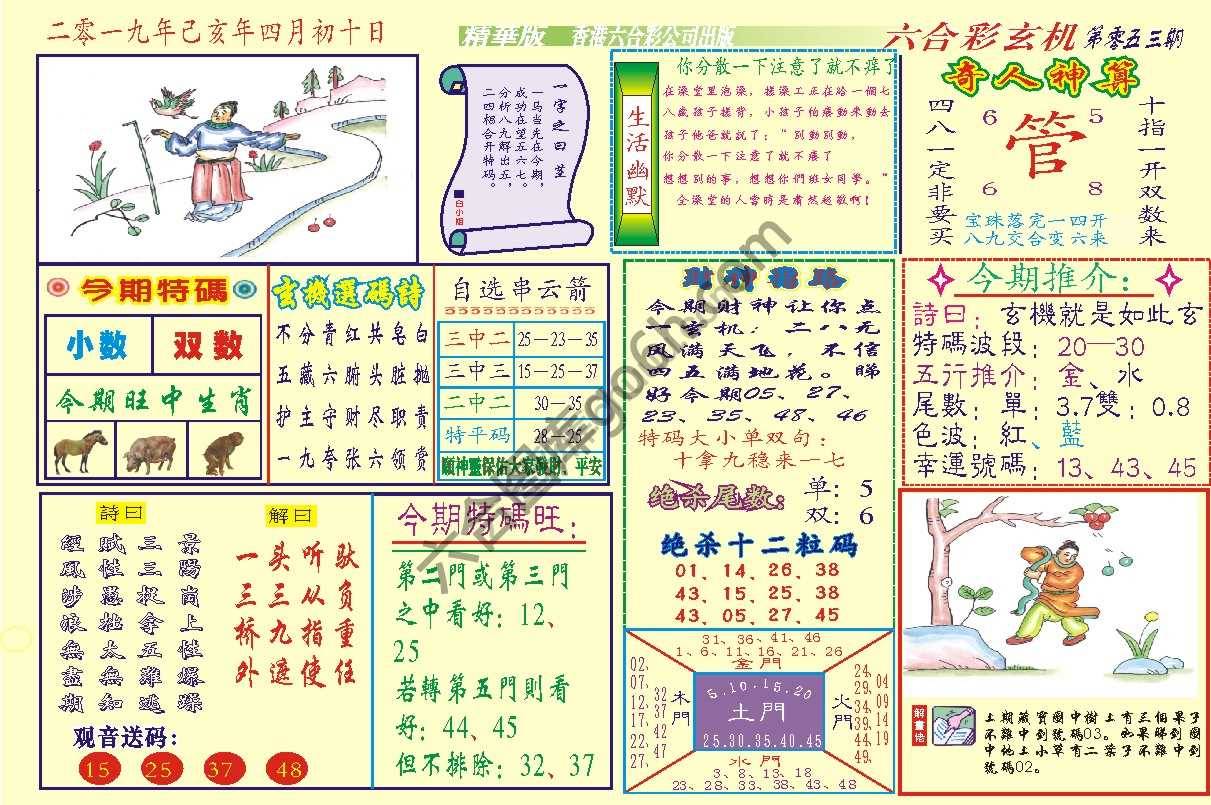 二零一九年己亥年四月初十日
精華版 香港六合彩公司出版
六合彩玄机 第零五三期
一字之曰：莖
一马当先在今期，
成功在望五六七。
分析八九解出五，
二四相合开特码。
白小姐
生活幽默
你分散一下注意了就不痒了
在澡堂里泡澡，搓澡工正在给一個七
八歲孩子搓背，小孩子怕癢動來動去
孩子他爸就說了："别動别動，
你分散一下注意了就不癢了
想想别的事，想想你們班女同學。"
全澡堂的人當時是肅然起敬啊！
奇人神算
四八一定非要买
6 5
管
6 8
十指一开双数来
宝珠落完一四开
八九交合变六来
今期特碼
小数 双数
今期旺中生肖
玄機選碼詩
不分青红共皂白
五藏六腑头脏抛
护主守财尽职责
一九夸张六领赏
自选串云箭
三中二 25—23—35
三中三 15—25—37
二中二 30—35
特平码 28—25
願神靈保佑大家發財、平安
财神
今期财神让你点
一玄机：二八无
风满天飞，不信
四五满地花。睇
好今期05、27、
23、35、48、46
特码大小单双句：
十拿九稳来一七
绝杀尾数： 单：5
双：6
绝杀十二粒码
01、14、26、38
43、15、25、38
43、05、27、45
今期推介：
詩曰：玄機就是如此玄
特碼波段：20—30
五行推介：金、水
尾數：單：3.7雙：0.8
色波：紅、藍
幸運號碼：13、43、45
詩曰
經風涉浪無盡期
賦性愚拙太無知
三三捉拿五難逃
景陽崗上性爆躁
解曰
一三桥外
头三九遮
听从指使
驮负重任
观音送码：
15 25 37 48
今期特碼旺：
第二門或第三門
之中看好：12、
25
若轉第五門則看
好：44、45
但不排除：32、37
31、36、41、46
1、6、11、16、21、26
金門
02、
07、
12、
17、
22、
27、
32
37
42
47
木門
5.10.15.20
土門
25.30.35.40.45
火門
24、
29、
34、
39、
44、
49、
04
09
14
19
水門
3、8、13、18
23、28、33、38、43、48
解畫悟
上期藏寶圖中樹上有三個果子
不難中到號碼03。如果睇到圖
中地上小草有二葉子不難中到
號碼02。
六合图库go66h.com